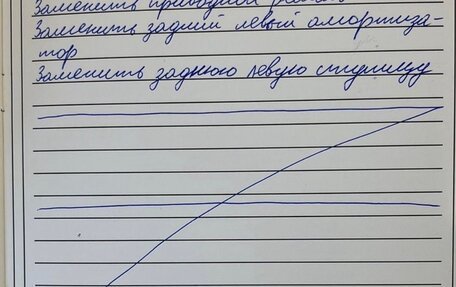 Заменить приводной ремень
Заменить задний левый амортиза-
тор
Заменить заднюю левую ступицу